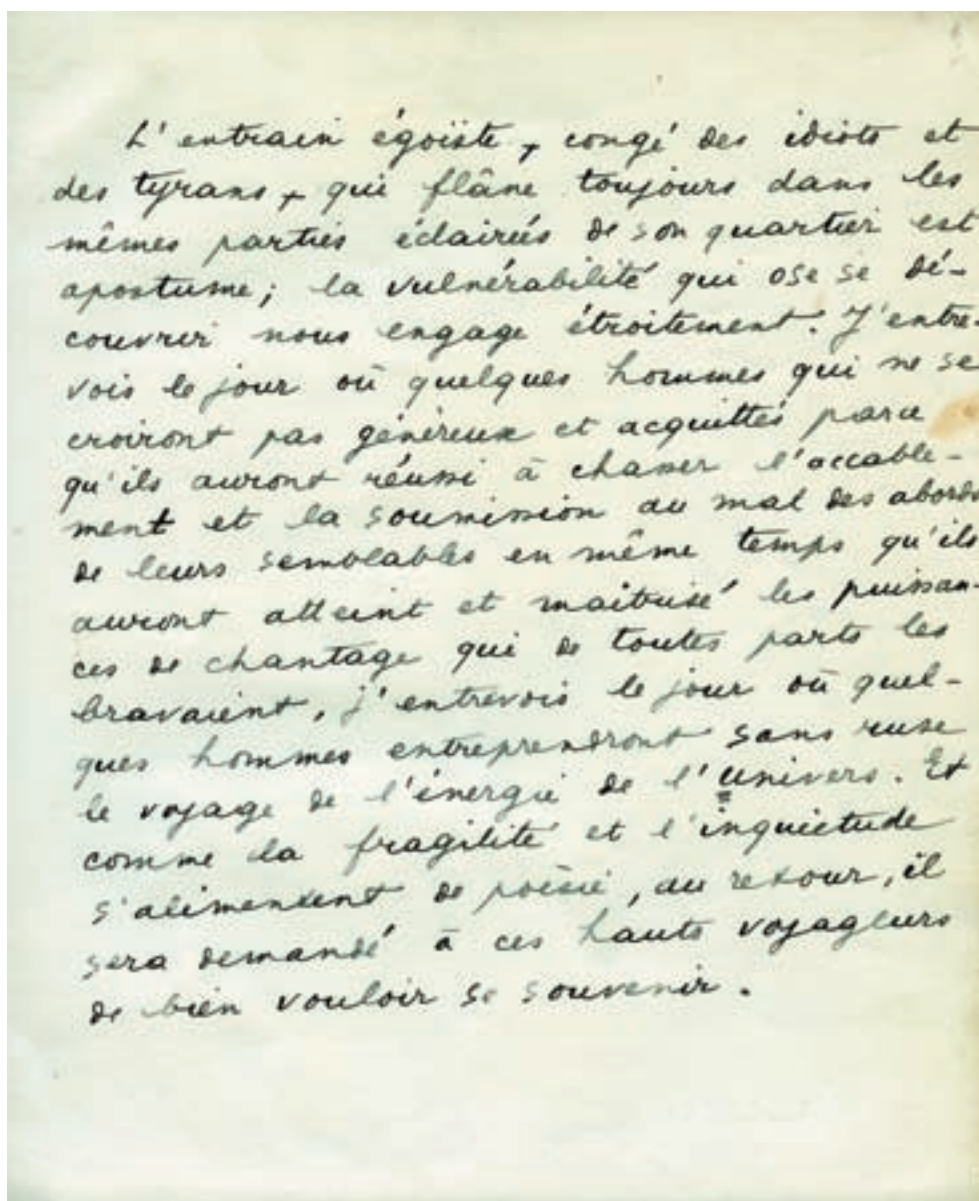 L'entrain égoïste, congé des idiots et
des tyrans, qui flâne toujours dans les
mêmes parties éclairées de son quartier est
apostume; la vulnérabilité qui ose se dé-
couvrir nous engage étroitement. J'entre-
vois le jour où quelques hommes qui ne se
croiront pas généreux et acquittés parce
qu'ils auront réussi à chasser l'accable-
ment et la soumission au mal des abords
de leurs semblables en même temps qu'ils
auront atteint et maîtrisé les puissan-
ces de chantage qui de toutes parts les
bravaient, j'entrevois le jour où quel-
ques hommes entreprendront sans ruse
le voyage de l'énergie de l'univers. Et
comme la fragilité et l'inquiétude
s'alimentent de poésie, au retour, il
sera demandé à ces hauts voyageurs
de bien vouloir se souvenir.